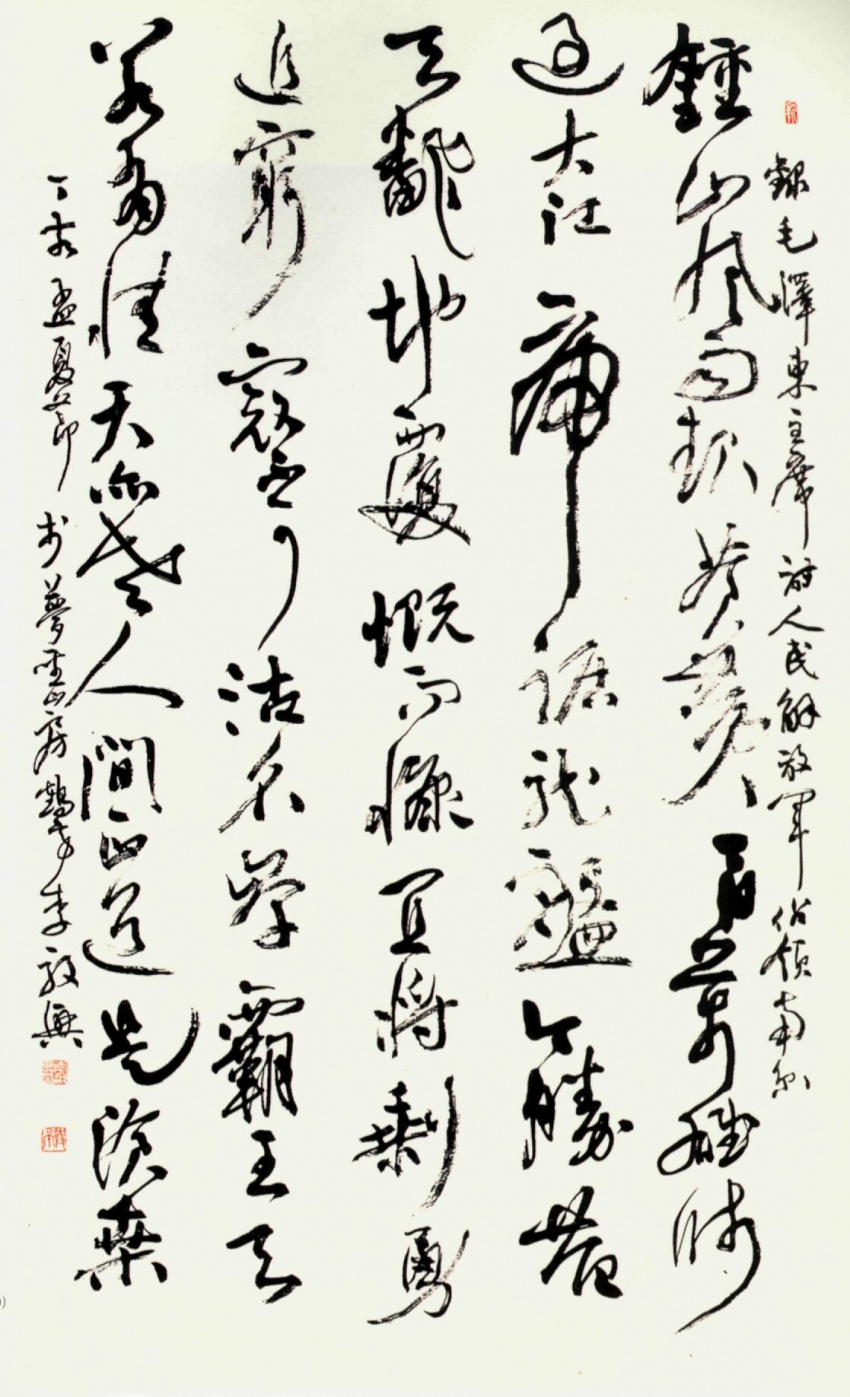 錄毛澤東主席詩人民解放軍佔領南京
鍾山風雨起蒼黃百萬雄師
過大江虎踞龍盤今勝昔
天翻地覆慨而慷宜將剩勇
追窮寇不可沽名學霸王天
若有情天亦老人間正道是滄桑
丁亥孟夏節於夢山房李興